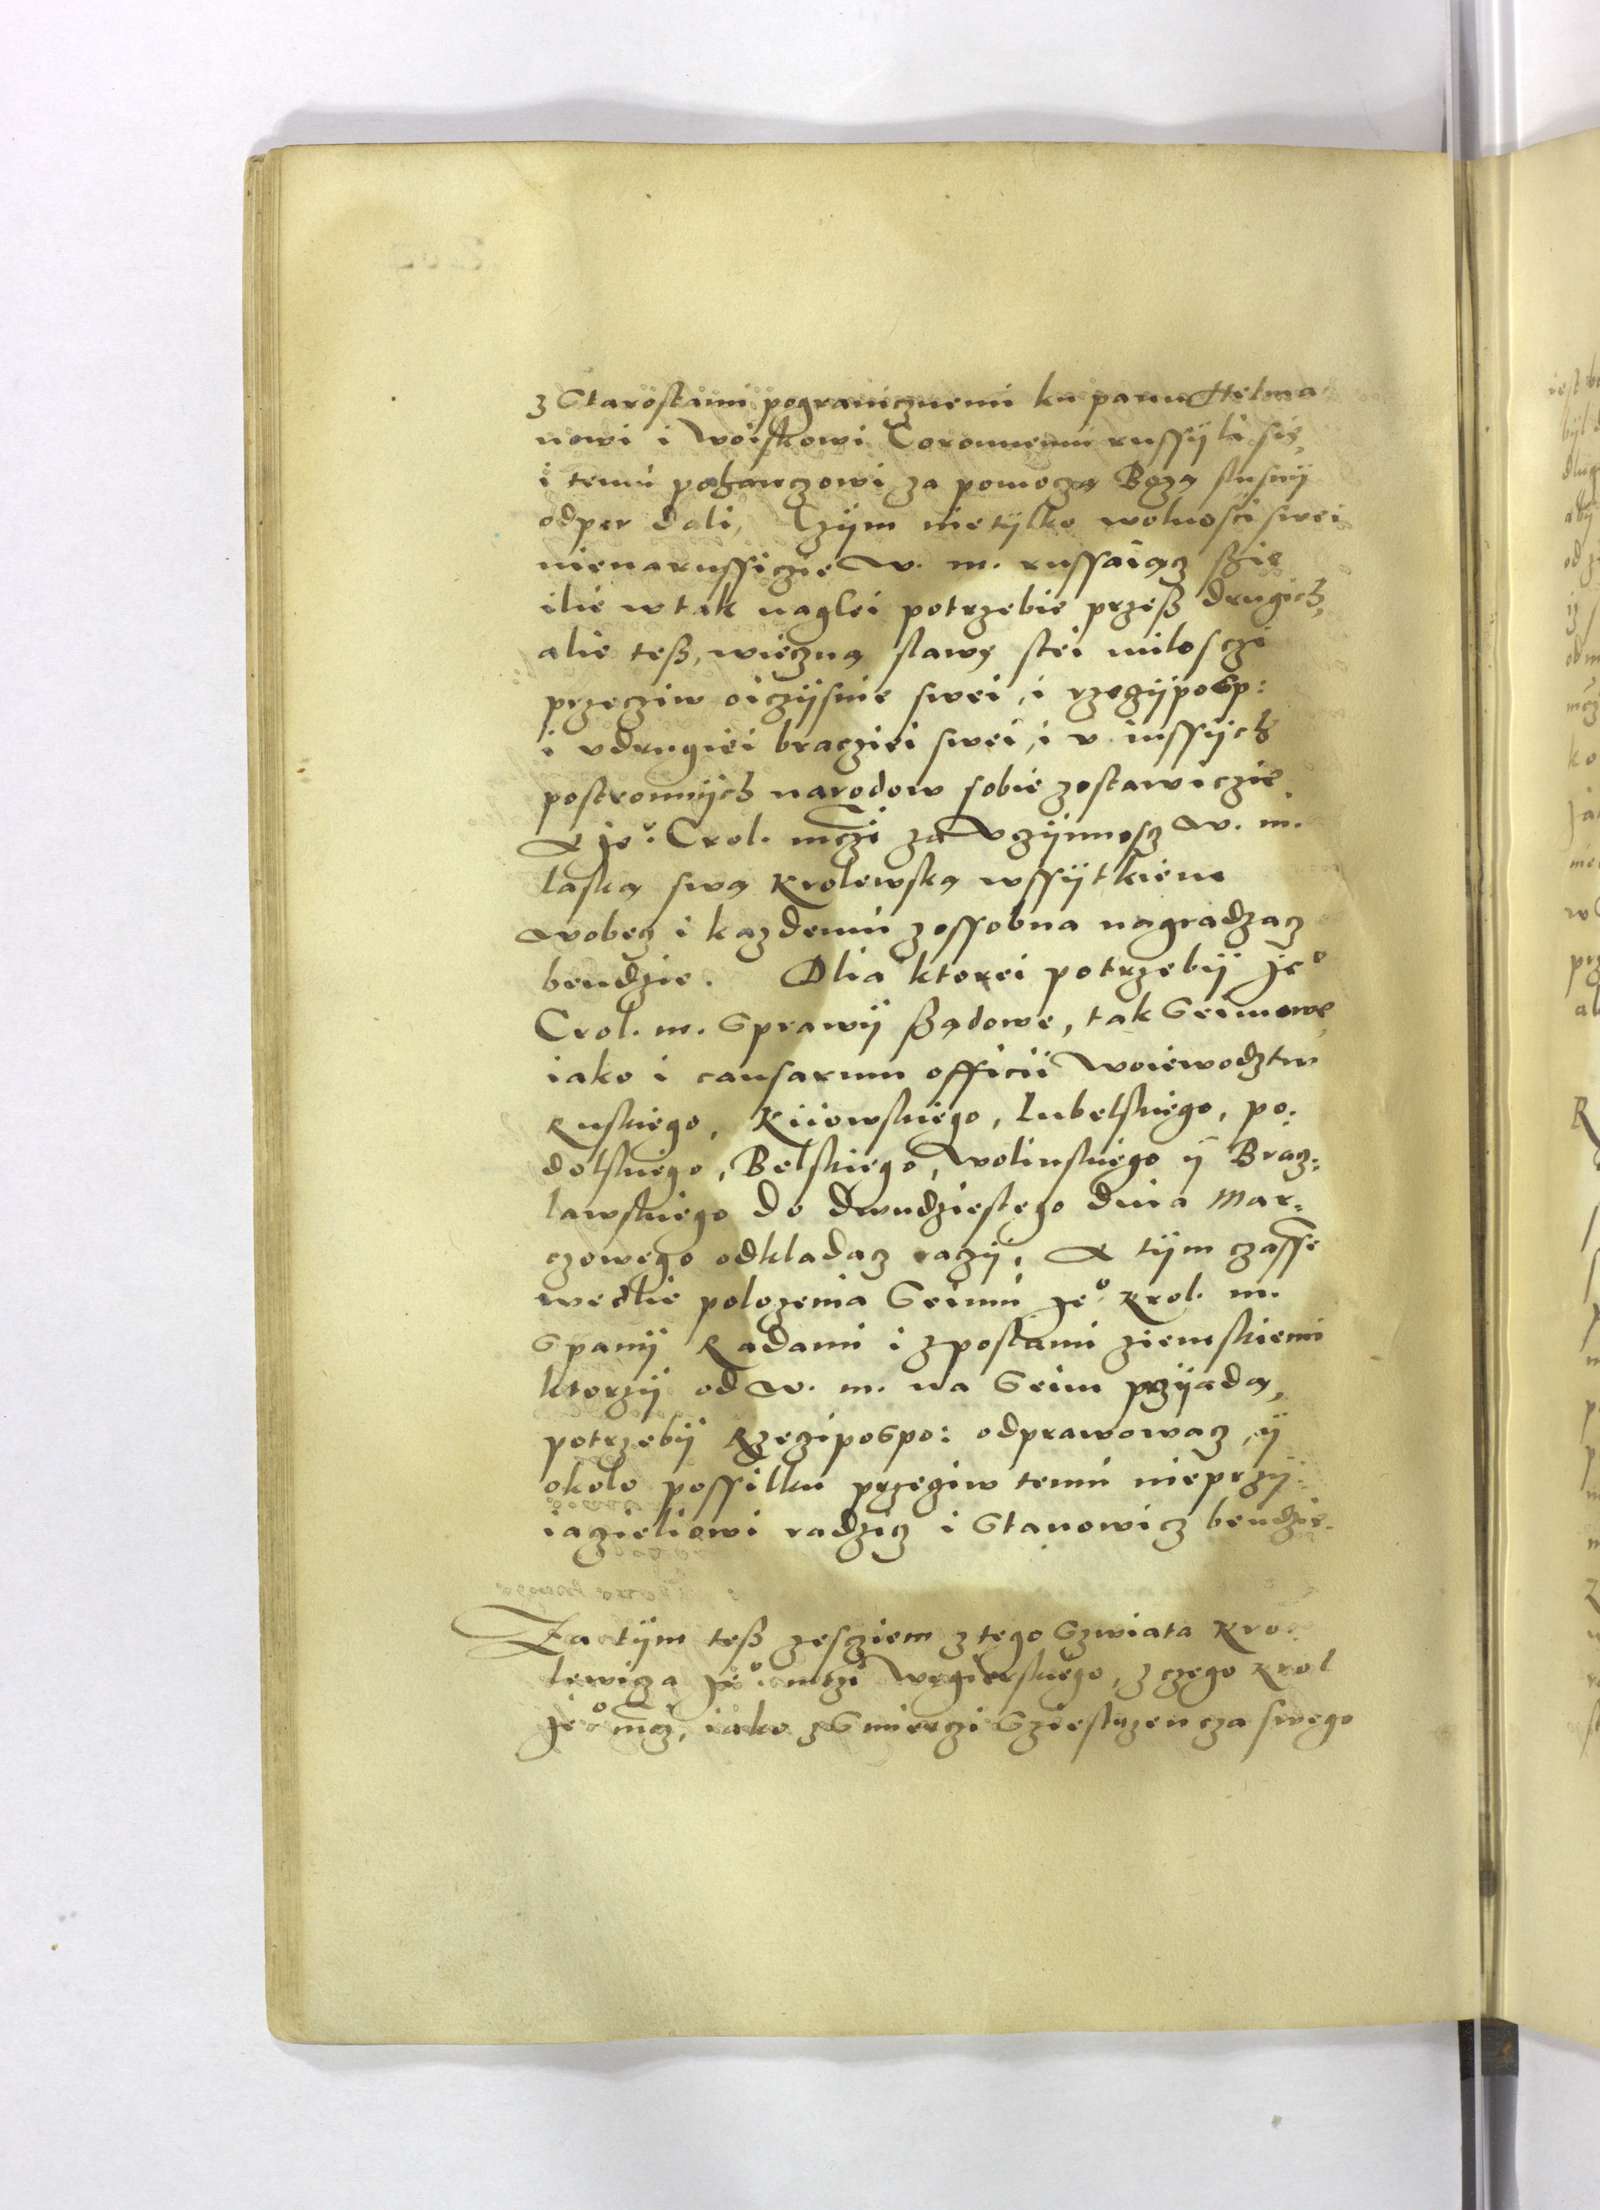 z Starostami pogranicznemi ku panu Hetma
nowi i Woiskowi Coronnemu russÿli się,
i temu pohanczowi za pomoczą Bozą slusnÿ
odpor dali, Czÿm nietÿlko wolnosci swei
nienarussiczie W. m. russaiącz szię
ilie w tak naglei potrzebie przeß drugich,
alie teß, wieczną slawę stei miloszczi
przecziw oiczÿsnie swei, i rzeczÿposp:
i v drugiei bracziei swei, i v inssÿch
postronnÿch narodow sobie zostawiczie.
A Je° Crol. mczi za Vczÿnnoscz W. m.
laską swą Krolewską wssÿtkiem
wobecz i kazdemu zossobna nagradzacz
bendzie. Dlia ktorei potrzebÿ Je°
Crol. m. Sprawÿ ßądowe, tak Seimowe,
iako i causarum officii Woiewodztw
Ruskiego, Kiiowskiego, Lubelskiego, po:
dolskiego, Belskiego, Wolinskiego ÿ Bracz:
lawskiego do dwudziestego dnia Mar:
czowego odkladacz raczÿ, A tÿm czasse
wedlie polozenia Seimu Je° Krol. m.
S panÿ Radami i z postami ziemskiemi
ktorzÿ od W. m. na Seim przÿiadą,
potrzebÿ Rzeczipospo: odprawowacz, ÿ
okolo possilku przecziw temu nieprzÿ:
iaczieliowi radzicz i Stanowicz bendzie.
Zatÿm teß zescziem z tego Szwiata Kro:
lewicza Je° mczi Węgierskiego, z czego Krol
Je° mcz, iako z Smierczi Sziestrzencza swego